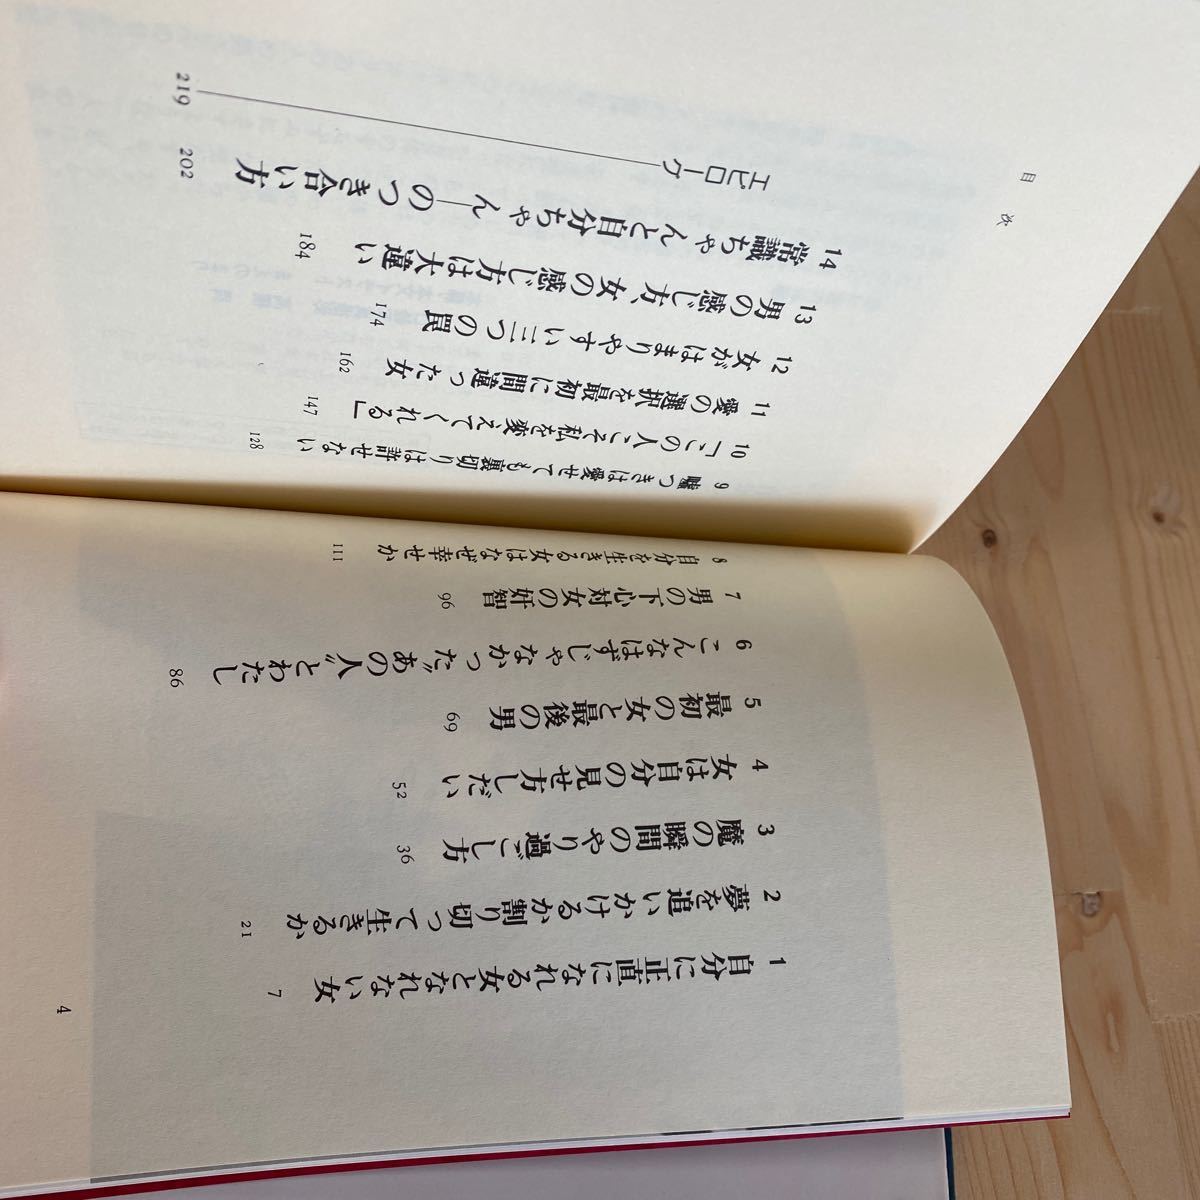 1 自分に正直になれる女となれない女 7
2 夢を追いかけるか割り切って生きるか 21
3 魔の瞬間のやり過ごし方 36
4 女は自分の見せ方しだい 52
5 最初の女と最後の男 69
6 こんなはずじゃなかった〝あの人〟とわたし 86
7 男の下心対女の奸智 96
8 自分を生きる女はなぜ幸せか 111
4
9 嘘つきは愛せても裏切りは許せない 128
10 「この人こそ私を変えてくれる」 147
11 愛の選択を最初に間違った女 162
12 女がはまりやすい三つの罠 174
13 男の感じ方、女の感じ方は大違い 184
14 常識ちゃんと自分ちゃん―のつき合い方 202
エピローグ 219
目次